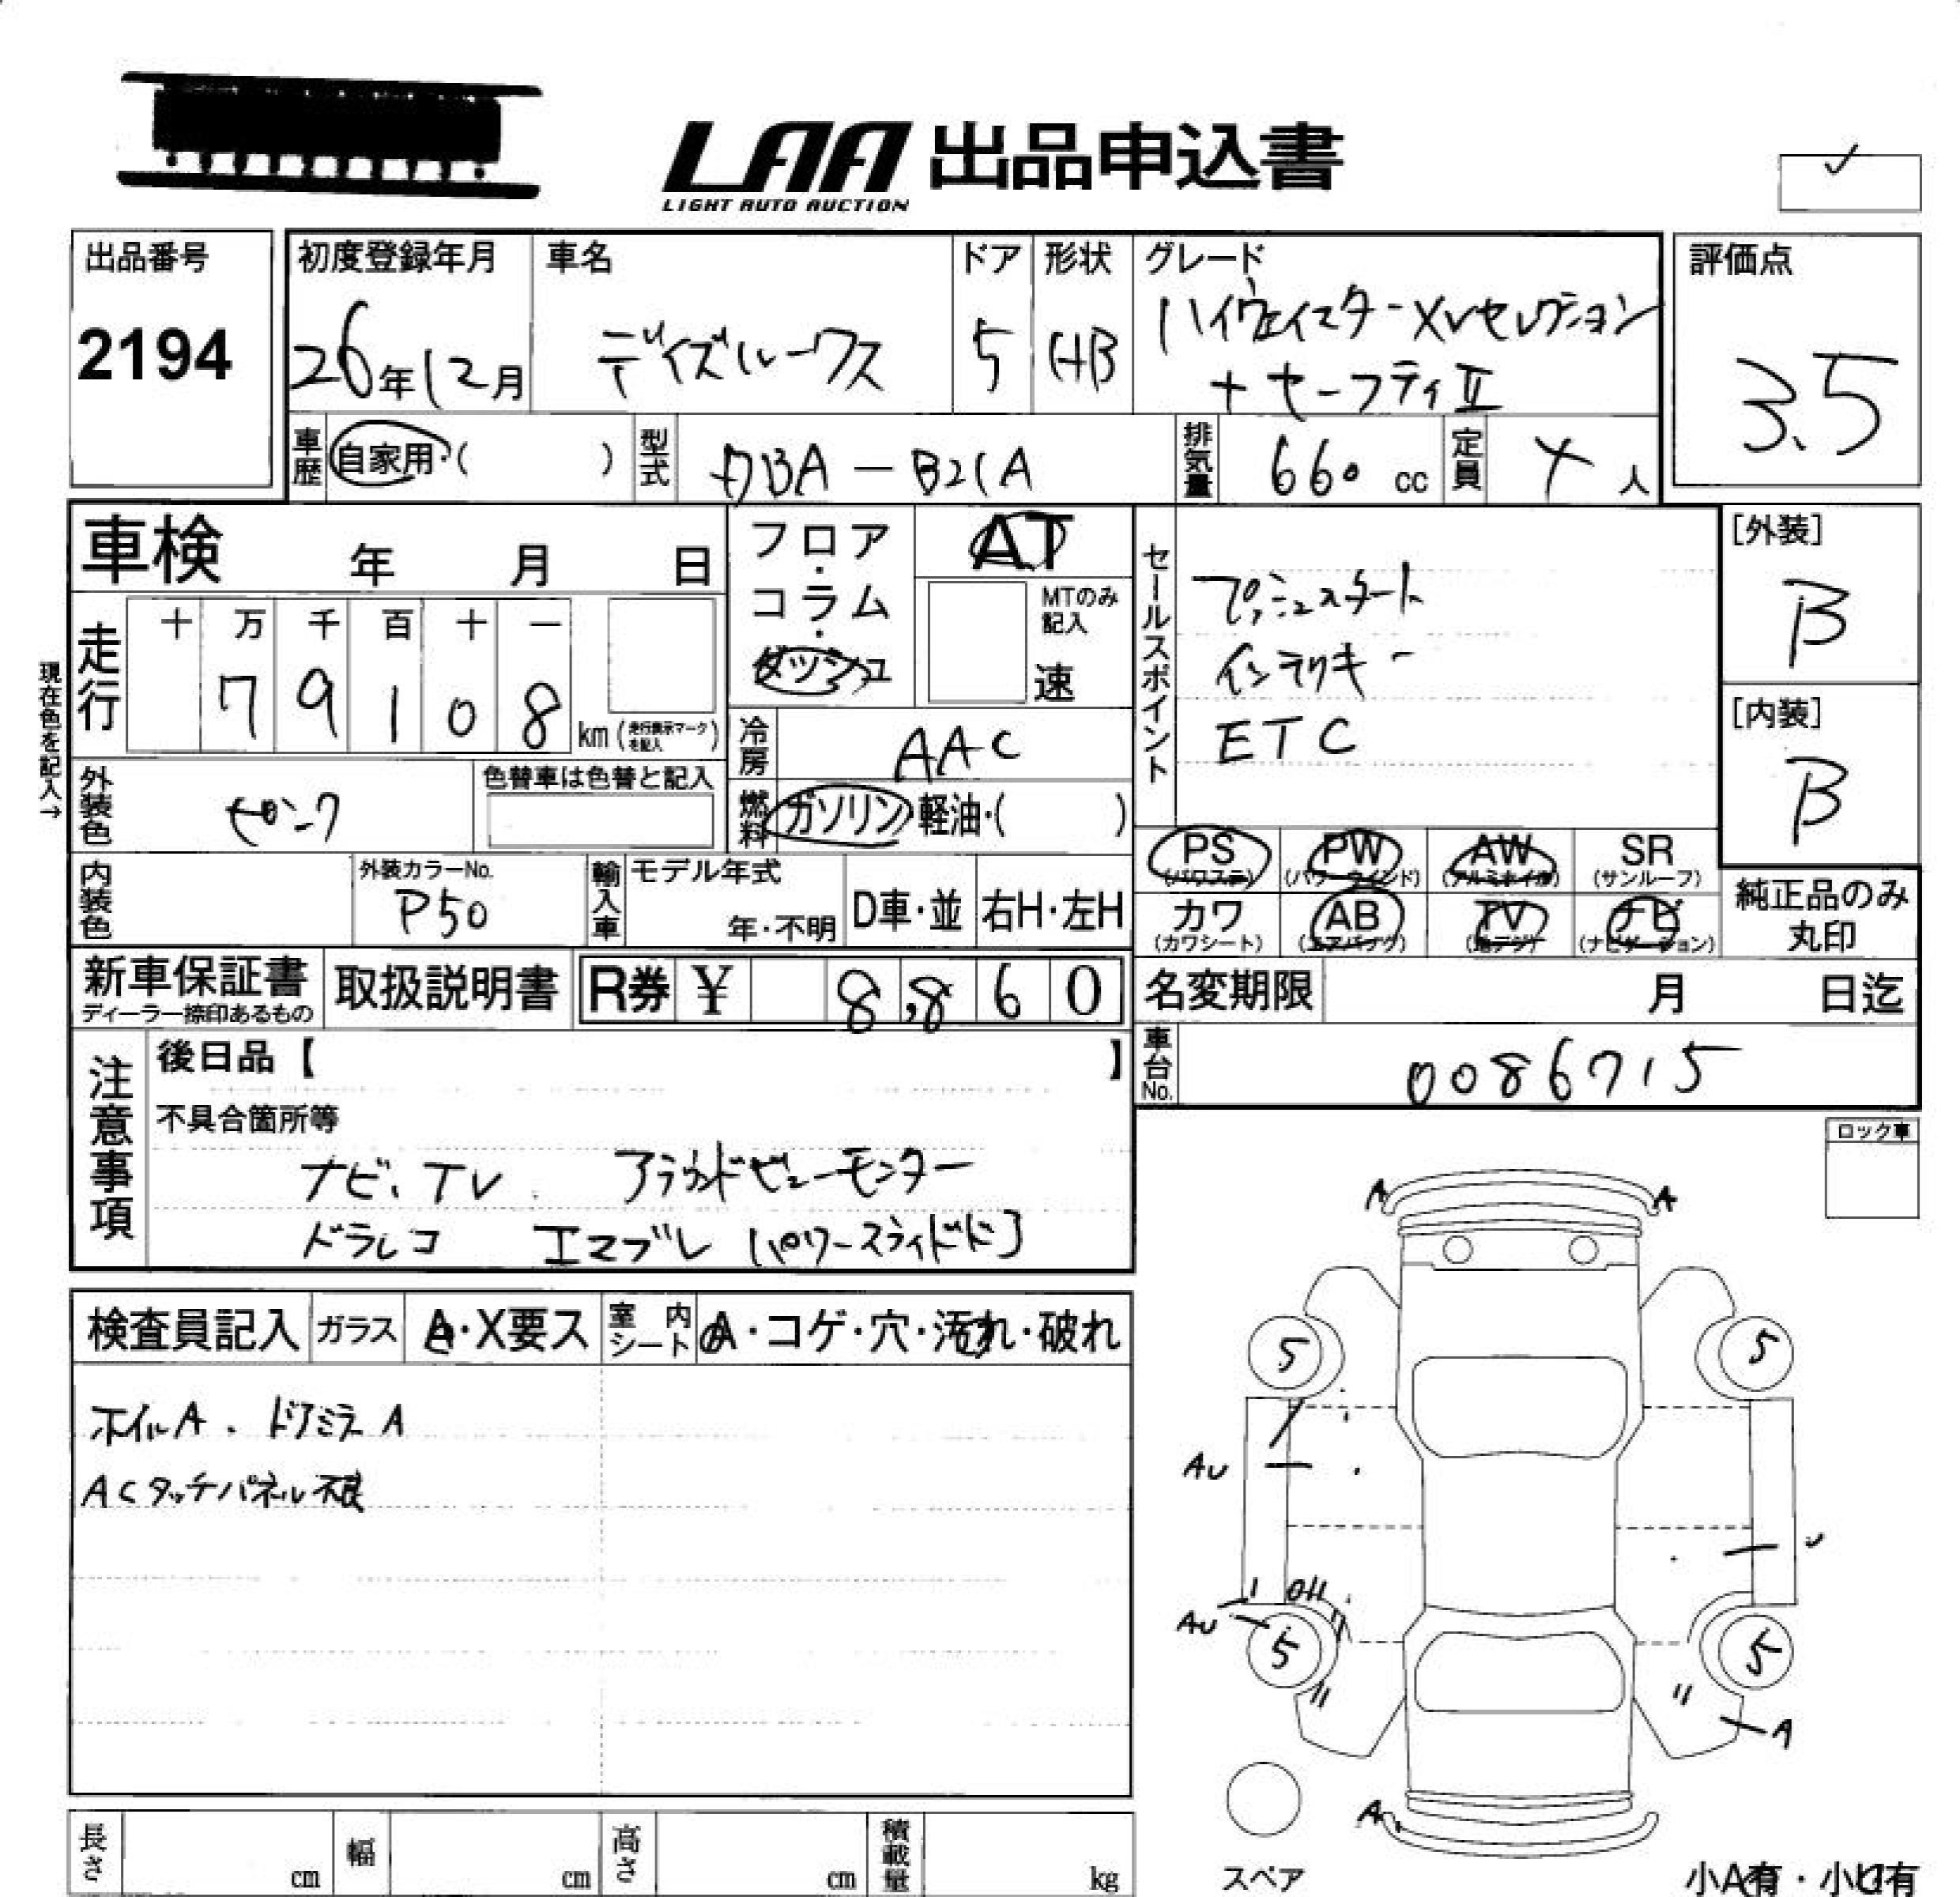 LAA 出品申込書
LIGHT AUTO AUCTION
出品番号
2194
初度登録年月
26年12月
車名
デイズルークス
ドア
5
形状
HB
グレード
ハイウェイスターXVセレクション
+セーフティⅡ
評価点
3.5
車歴
自家用・( )
型式
DBA-B21A
排気量
660 cc
定員
4人
車検 年 月 日
フロア・コラム・ダッシュ
AT
MTのみ記入
速
セールスポイント
プッシュスタート
インテリキー
ETC
[外装]
B
[内装]
B
現在色を記入→
走行
十 万 千 百 十 一
7 9 1 0 8 km (走行表示マークを記入)
冷房
AAC
外装色
ピンク
色替車は色替と記入
燃料
ガソリン・軽油・( )
PS (パワステ)
PW (パワーウインド)
AW (アルミホイル)
SR (サンルーフ)
カワ (カワシート)
AB (エアバッグ)
TV (地デジ)
ナビ (ナビゲーション)
純正品のみ
丸印
内装色
外装カラーNo.
P50
輸入車
モデル年式
年・不明
D車・並
右H・左H
新車保証書
ディーラー捺印あるもの
取扱説明書
R券 ¥ 8,860
名変期限 月 日迄
車台No.
0086715
注意事項
後日品【 】
不具合箇所等
ナビ、TV アラウンドビューモニター
ドラレコ エマブレ
ロック車
検査員記入
ガラス
A・X要ス
室内シート
A・コゲ・穴・汚れ・破れ
ホイルA.ドアミラーA
ACタッチパネル不良
A A
5 5
AU
U
AU
5 5
A
A
スペア
小A有・小U有
長さ cm
幅 cm
高さ cm
積載量 kg